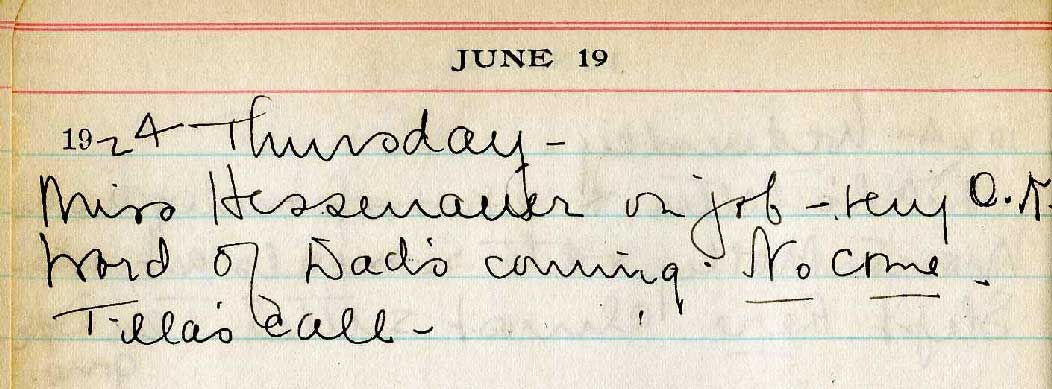 JUNE 19
1924 Thursday -
Miss Hessenauer on job - very O.K.
Word of Dad's coming. No come.
Tilla's call -